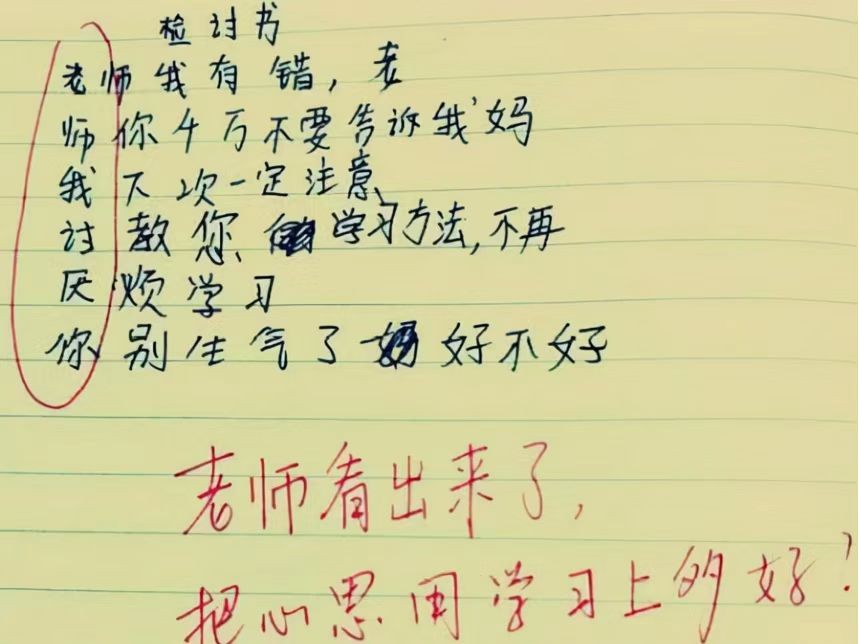 检讨书
老师我有错，老
师你千万不要告诉我妈
我下次一定注意、
讨教您 学习方法,不再
厌烦学习
你别生气了 好不好
老师看出来了,
把心思用学习上多好!